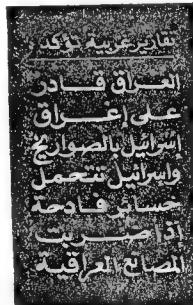 تقارير غربية تؤكد
العراق قادر
على إغراق
إسرائيل بالصواريخ
وإسرائيل تتحمل
خسائر فادحة
إذا ضربت
المصانع العراقية